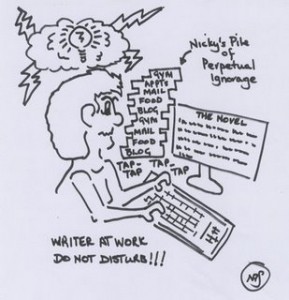 Nicky's Pile
of
Perpetual
Ignorage
GYM
APPTS
MAIL
FOOD
BLOG
GYM
MAIL
FOOD
BLOG
THE NOVEL
TAP-
TAP
TAP-
TAP
WRITER AT WORK
DO NOT DISTURB!!!